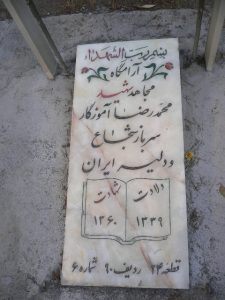 بسم رب الشهداء
آرامگاه
مجاهد شهید
محمد رضا آموزگار
سرباز شجاع
و دلیر ایران
ولادت شهادت
۱۳۳۹ ۱۳۶۰
قطعه ۲۴ ردیف ۹۰ شماره ۶